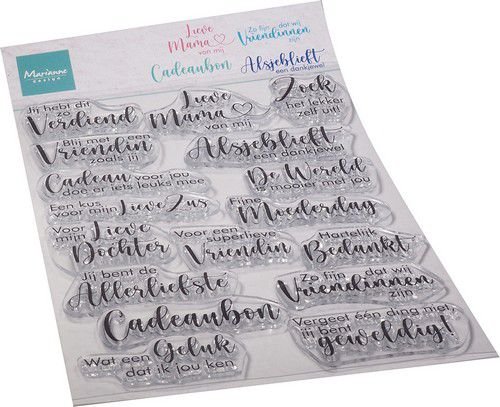 Marianne
design
Lieve
Mama
van mij
Zo fijn dat wij
Vriendinnen
zijn
Cadeaubon
Alsjeblieft
een dankjewel
Jij hebt dit
zo
Verdiend
Lieve
Mama
van mij
Zoek
het lekker
zelf uit!
Blij met een
Vriendin
zoals jij
Alsjeblieft
een dankjewel
Cadeau voor jou
doe er iets leuks mee
De Wereld
is mooier met jou
Een kus
voor mijn Lieve Zus
Fijne
Moederdag
Voor
mijn
Lieve
Dochter
Voor een
superlieve
Vriendin
Hartelijk
Bedankt
Jij bent de
Allerliefste
Zo fijn dat wij
Vriendinnen
zijn
Cadeaubon
Vergeet één ding niet
jij bent
geweldig!
Wat een Geluk
dat ik jou ken